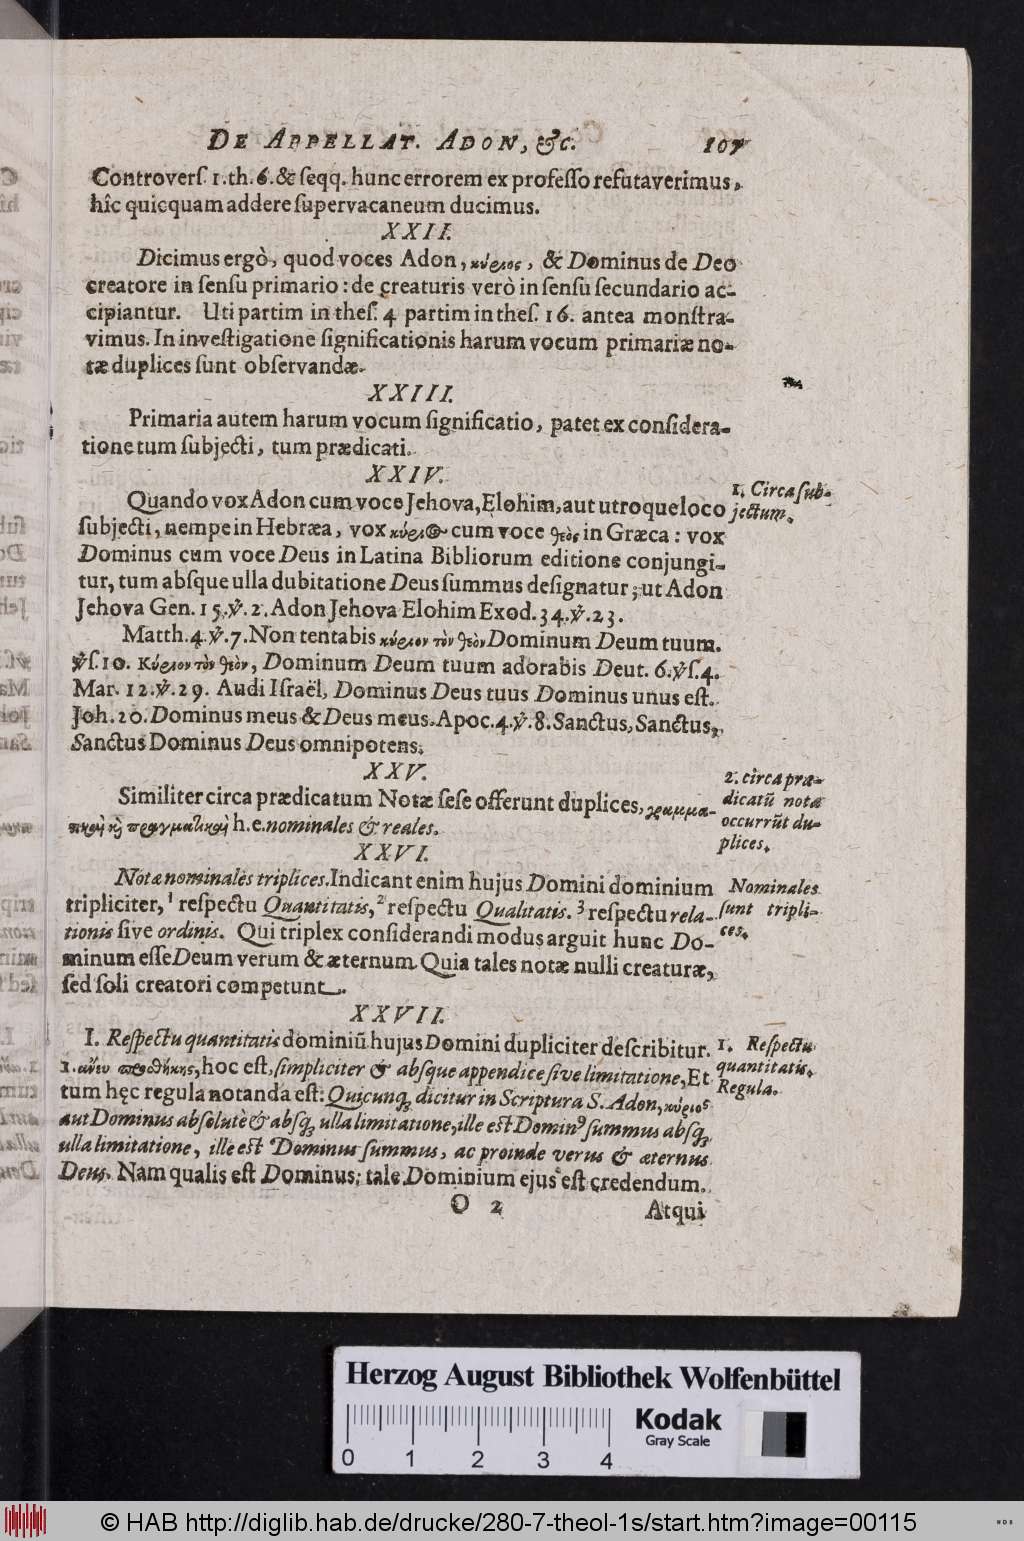 DE APPELLAT. ADON, &c. 107
Controverſ. 1. th. 6. & ſeqq. hunc errorem ex profeſſo refutaverimus,
hîc quicquam addere ſupervacaneum ducimus.
XXII.
Dicimus ergò, quod voces Adon, κύριος, & Dominus de Deo
creatore in ſenſu primario: de creaturis verò in ſenſu ſecundario ac-
cipiantur. Uti partim in theſ. 4 partim in theſ. 16. antea monſtra-
vimus. In inveſtigatione ſignificationis harum vocum primariæ no-
tæ duplices ſunt obſervandæ.
XXIII.
Primaria autem harum vocum ſignificatio, patet ex conſidera-
tione tum ſubjecti, tum prædicati.
XXIV.
Quando vox Adon cum voce Jehova, Elohim, aut utroque loco
1. Circa ſub-
jectum.
ſubjecti, nempe in Hebræa, vox κύριος cum voce θεὸς in Græca: vox
Dominus cum voce Deus in Latina Bibliorum editione conjungi-
tur, tum abſque ulla dubitatione Deus ſummus deſignatur; ut Adon
Jehova Gen. 15. ℣. 2. Adon Jehova Elohim Exod. 34. ℣. 23.
Matth. 4. ℣. 7. Non tentabis κύριον τὸν θεὸν Dominum Deum tuum.
℣ſ. 10. Κύριον τὸν θεὸν, Dominum Deum tuum adorabis Deut. 6. ℣ſ. 4.
Mar. 12. ℣. 29. Audi Iſraël, Dominus Deus tuus Dominus unus eſt.
Joh. 20. Dominus meus & Deus meus. Apoc. 4. ℣. 8. Sanctus, Sanctus,
Sanctus Dominus Deus omnipotens.
XXV.
Similiter circa prædicatum Notæ ſeſe offerunt duplices, γραμμα-
τικαὶ καὶ πραγματικαὶ h. e. nominales & reales.
2. circa præ-
dicatū notæ
occurrūt du-
plices.
XXVI.
Notæ nominales triplices. Indicant enim hujus Domini dominium
tripliciter, 1 reſpectu Quantitatis, 2 reſpectu Qualitatis. 3 reſpectu rela-
tionis ſive ordinis. Qui triplex conſiderandi modus arguit hunc Do-
minum eſſe Deum verum & æternum. Quia tales notæ nulli creaturæ,
ſed ſoli creatori competunt.
Nominales
ſunt tripli-
ces.
XXVII.
I. Reſpectu quantitatis dominiū hujus Domini dupliciter deſcribitur.
1. ἄνευ προσθήκης, hoc eſt, ſimpliciter & abſque appendice ſive limitatione, Et
tum hęc regula notanda eſt: Quicunq; dicitur in Scriptura S. Adon, κύριος
aut Dominus abſolutè & abſq; ulla limitatione, ille eſt Dominꝰ ſummus abſq;
ulla limitatione, ille eſt Dominus ſummus, ac proinde verus & æternus
Deus. Nam qualis eſt Dominus; tale Dominium ejus eſt credendum.
1. Reſpectu
quantitatis,
Regula.
O 2 Atqui
Herzog August Bibliothek Wolfenbüttel
Kodak
Gray Scale
0 1 2 3 4
© HAB http://diglib.hab.de/drucke/280-7-theol-1s/start.htm?image=00115